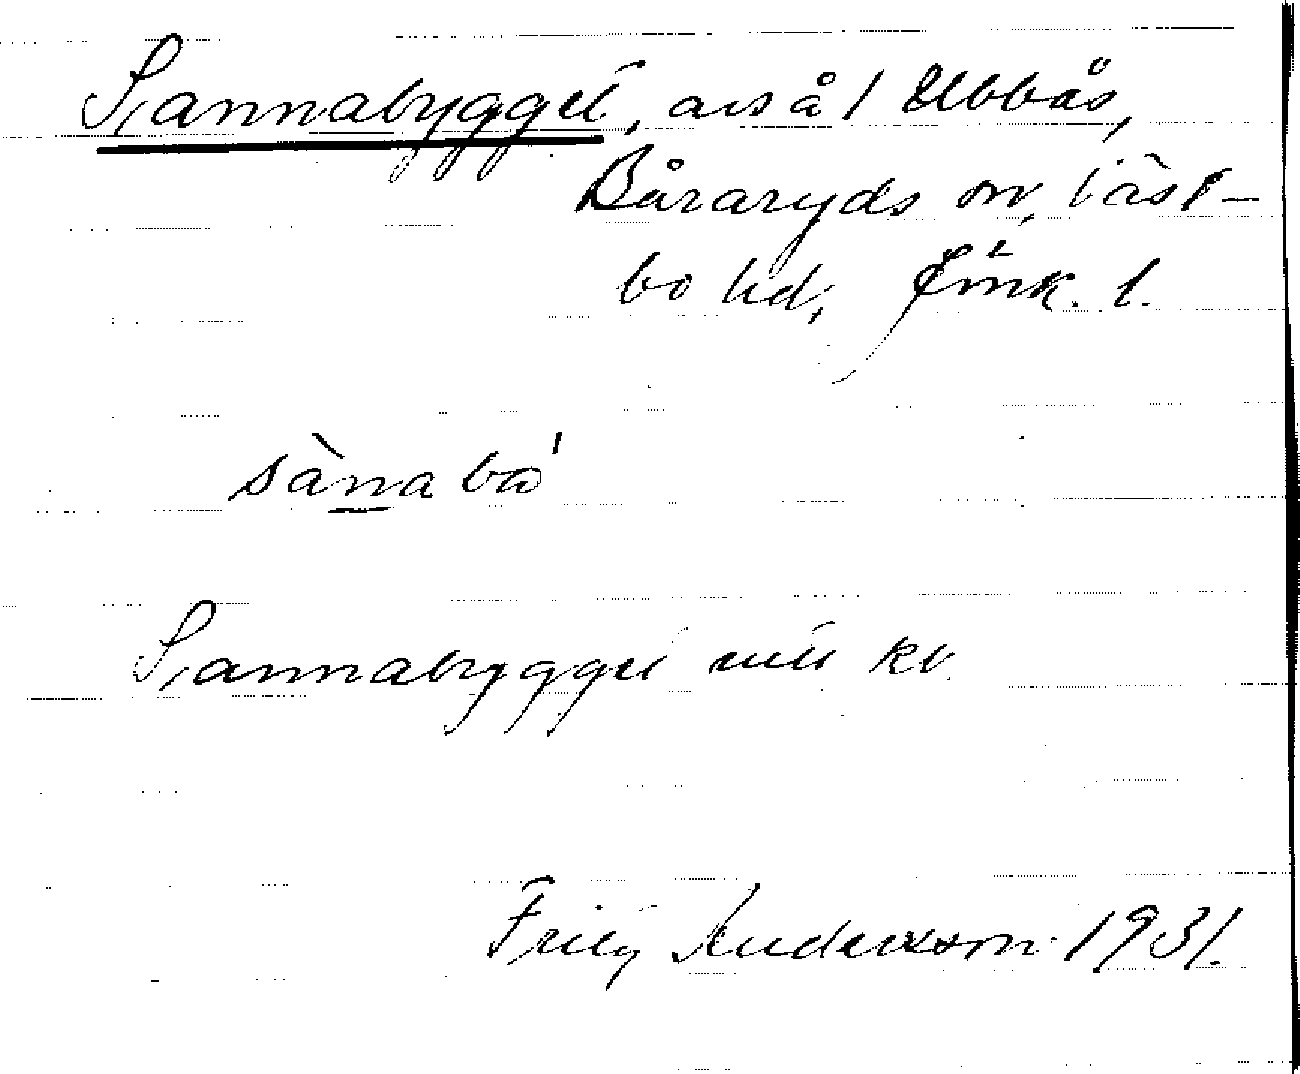 Sannabygget, avs å 1 Ubbås,
Båraryds sn, Väst-
bo hd, Jönk. l.
sànabo'
Sannabygget enl. kb.
Fritz Anderson 1931.